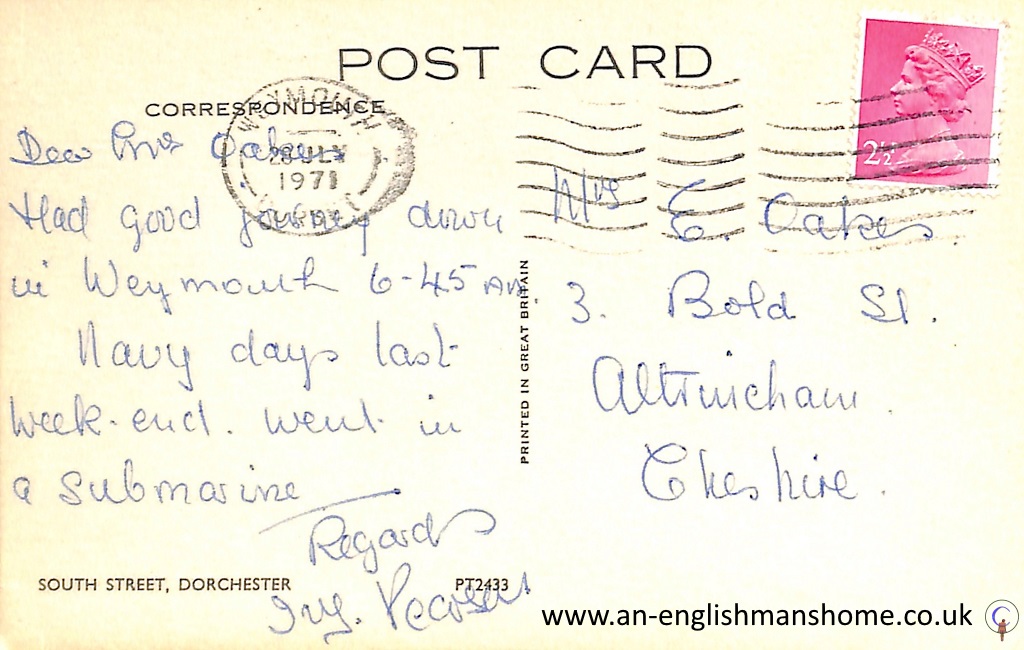 POST CARD
CORRESPONDENCE
WEYMOUTH
JLY
1971
2½
Dear Mrs Oakes
Had good journey down
in Weymouth 6-45 AM.
Navy days last
week-end. went in
a submarine
Regards
Ivy.
Mrs E. Oakes
3. Bold St.
Altrincham.
Cheshire.
PRINTED IN GREAT BRITAIN
SOUTH STREET, DORCHESTER
PT2433
www.an-englishmanshome.co.uk